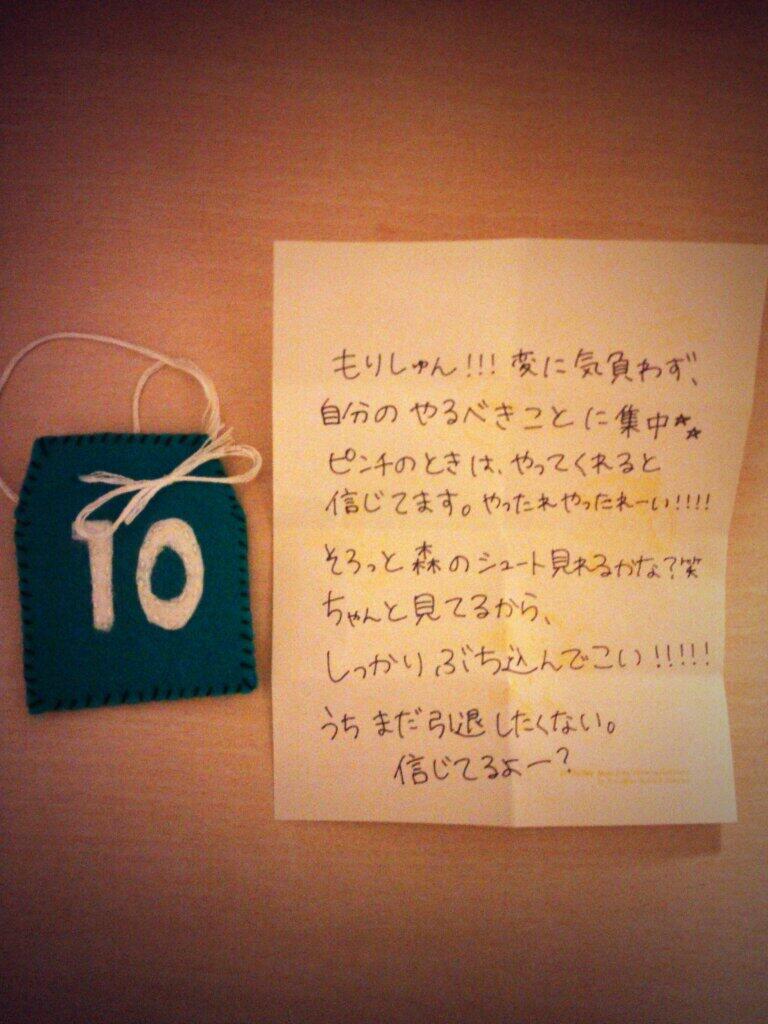 10
もりしゅん!!! 変に気負わず、
自分のやるべきことに集中☆☆
ピンチのときは、やってくれると
信じてます。やったれやったれーい!!!!
そろっと森のシュート見れるかな?笑
ちゃんと見てるから、
しっかりぶち込んでこい!!!!!
うちまだ引退したくない。
信じてるよー?